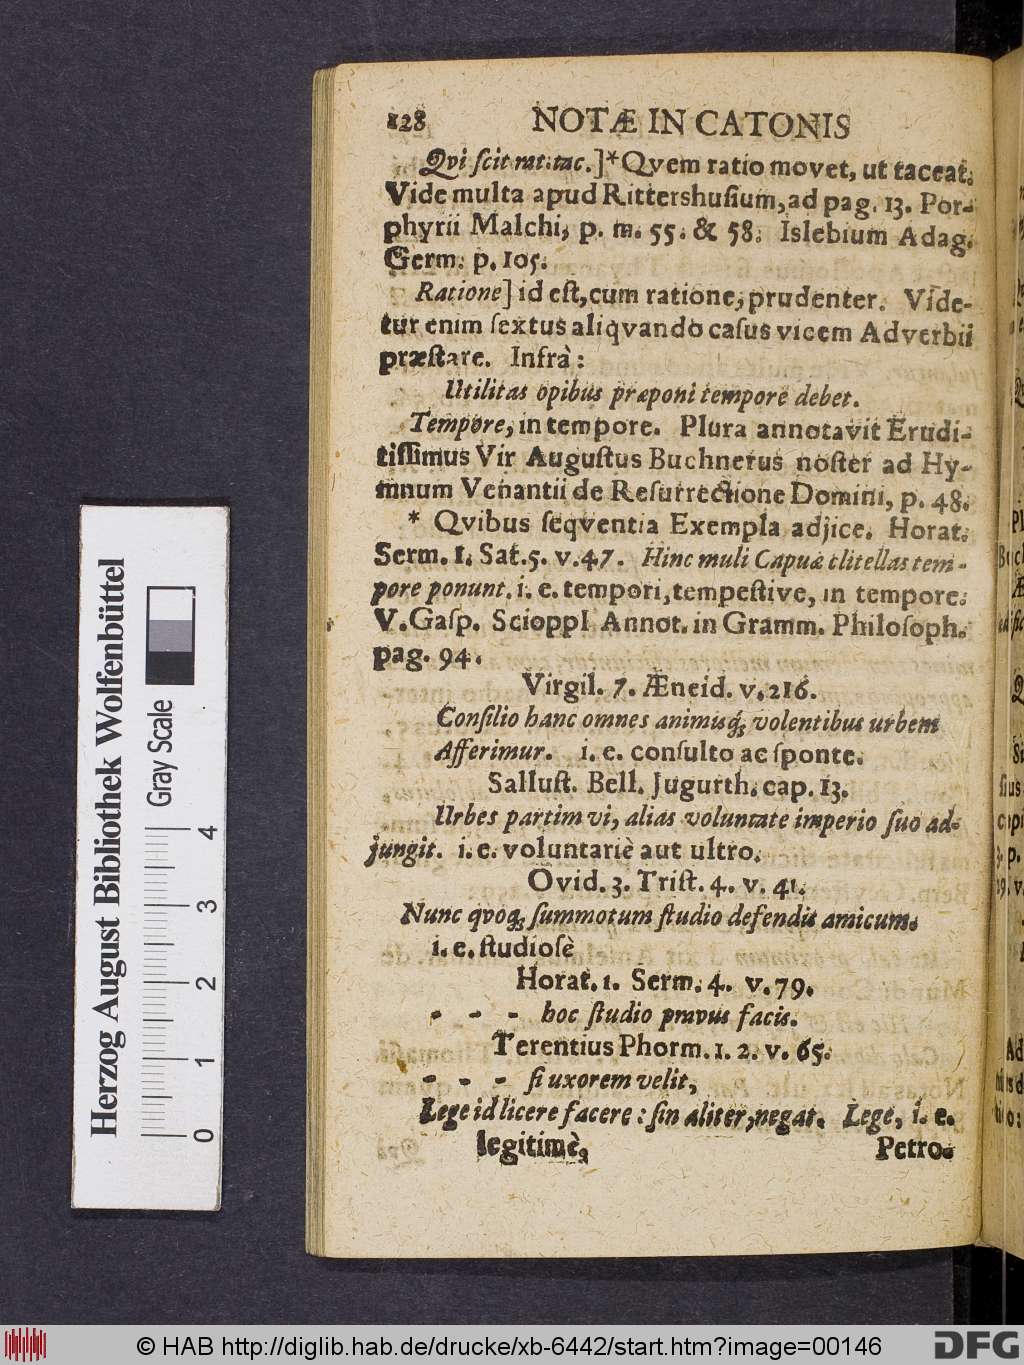 128 NOTÆ IN CATONIS
Qvi ſcit rat. tac.]*Qvem ratio movet, ut taceat.
Vide multa apud Rittershuſium, ad pag. 13. Por-
phyrii Malchi, p. m. 55. & 58. Islebium Adag.
Germ. p. 105.
Ratione] id eſt, cum ratione, prudenter. Vide-
tur enim ſextus aliqvando caſus vicem Adverbii
præſtare. Infrà:
Utilitas opibus præponi tempore debet.
Tempore, in tempore. Plura annotavit Erudi-
tiſſimus Vir Auguſtus Buchnerus noſter ad Hy-
mnum Venantii de Reſurrectione Domini, p. 48.
* Qvibus ſeqventia Exempla adjice. Horat.
Serm. 1. Sat. 5. v. 47. Hinc muli Capuæ clitellas tem-
pore ponunt. i. e. tempori, tempeſtive, in tempore.
V. Gaſp. Scioppl Annot. in Gramm. Philoſoph.
pag. 94.
Virgil. 7. Æneid. v. 216.
Conſilio hanc omnes animisq́; volentibus urbem
Afferimur. i. e. conſulto ac ſponte.
Salluſt. Bell. Jugurth. cap. 13.
Urbes partim vi, alias voluntate imperio ſuo ad-
jungit. i. e. voluntariè aut ultro.
Ovid. 3. Triſt. 4. v. 41.
Nunc qvoq; ſummotum ſtudio defendis amicum.
i. e. ſtudiosè
Horat. 1. Serm. 4. v. 79.
- - - hoc ſtudio pravus facis.
Terentius Phorm. 1. 2. v. 65.
- - - ſi uxorem velit,
Lege id licere facere: ſin aliter, negat. Lege, i. e.
legitimè, Petro-
Herzog August Bibliothek Wolfenbüttel
Gray Scale
0 1 2 3 4
© HAB http://diglib.hab.de/drucke/xb-6442/start.htm?image=00146
DFG